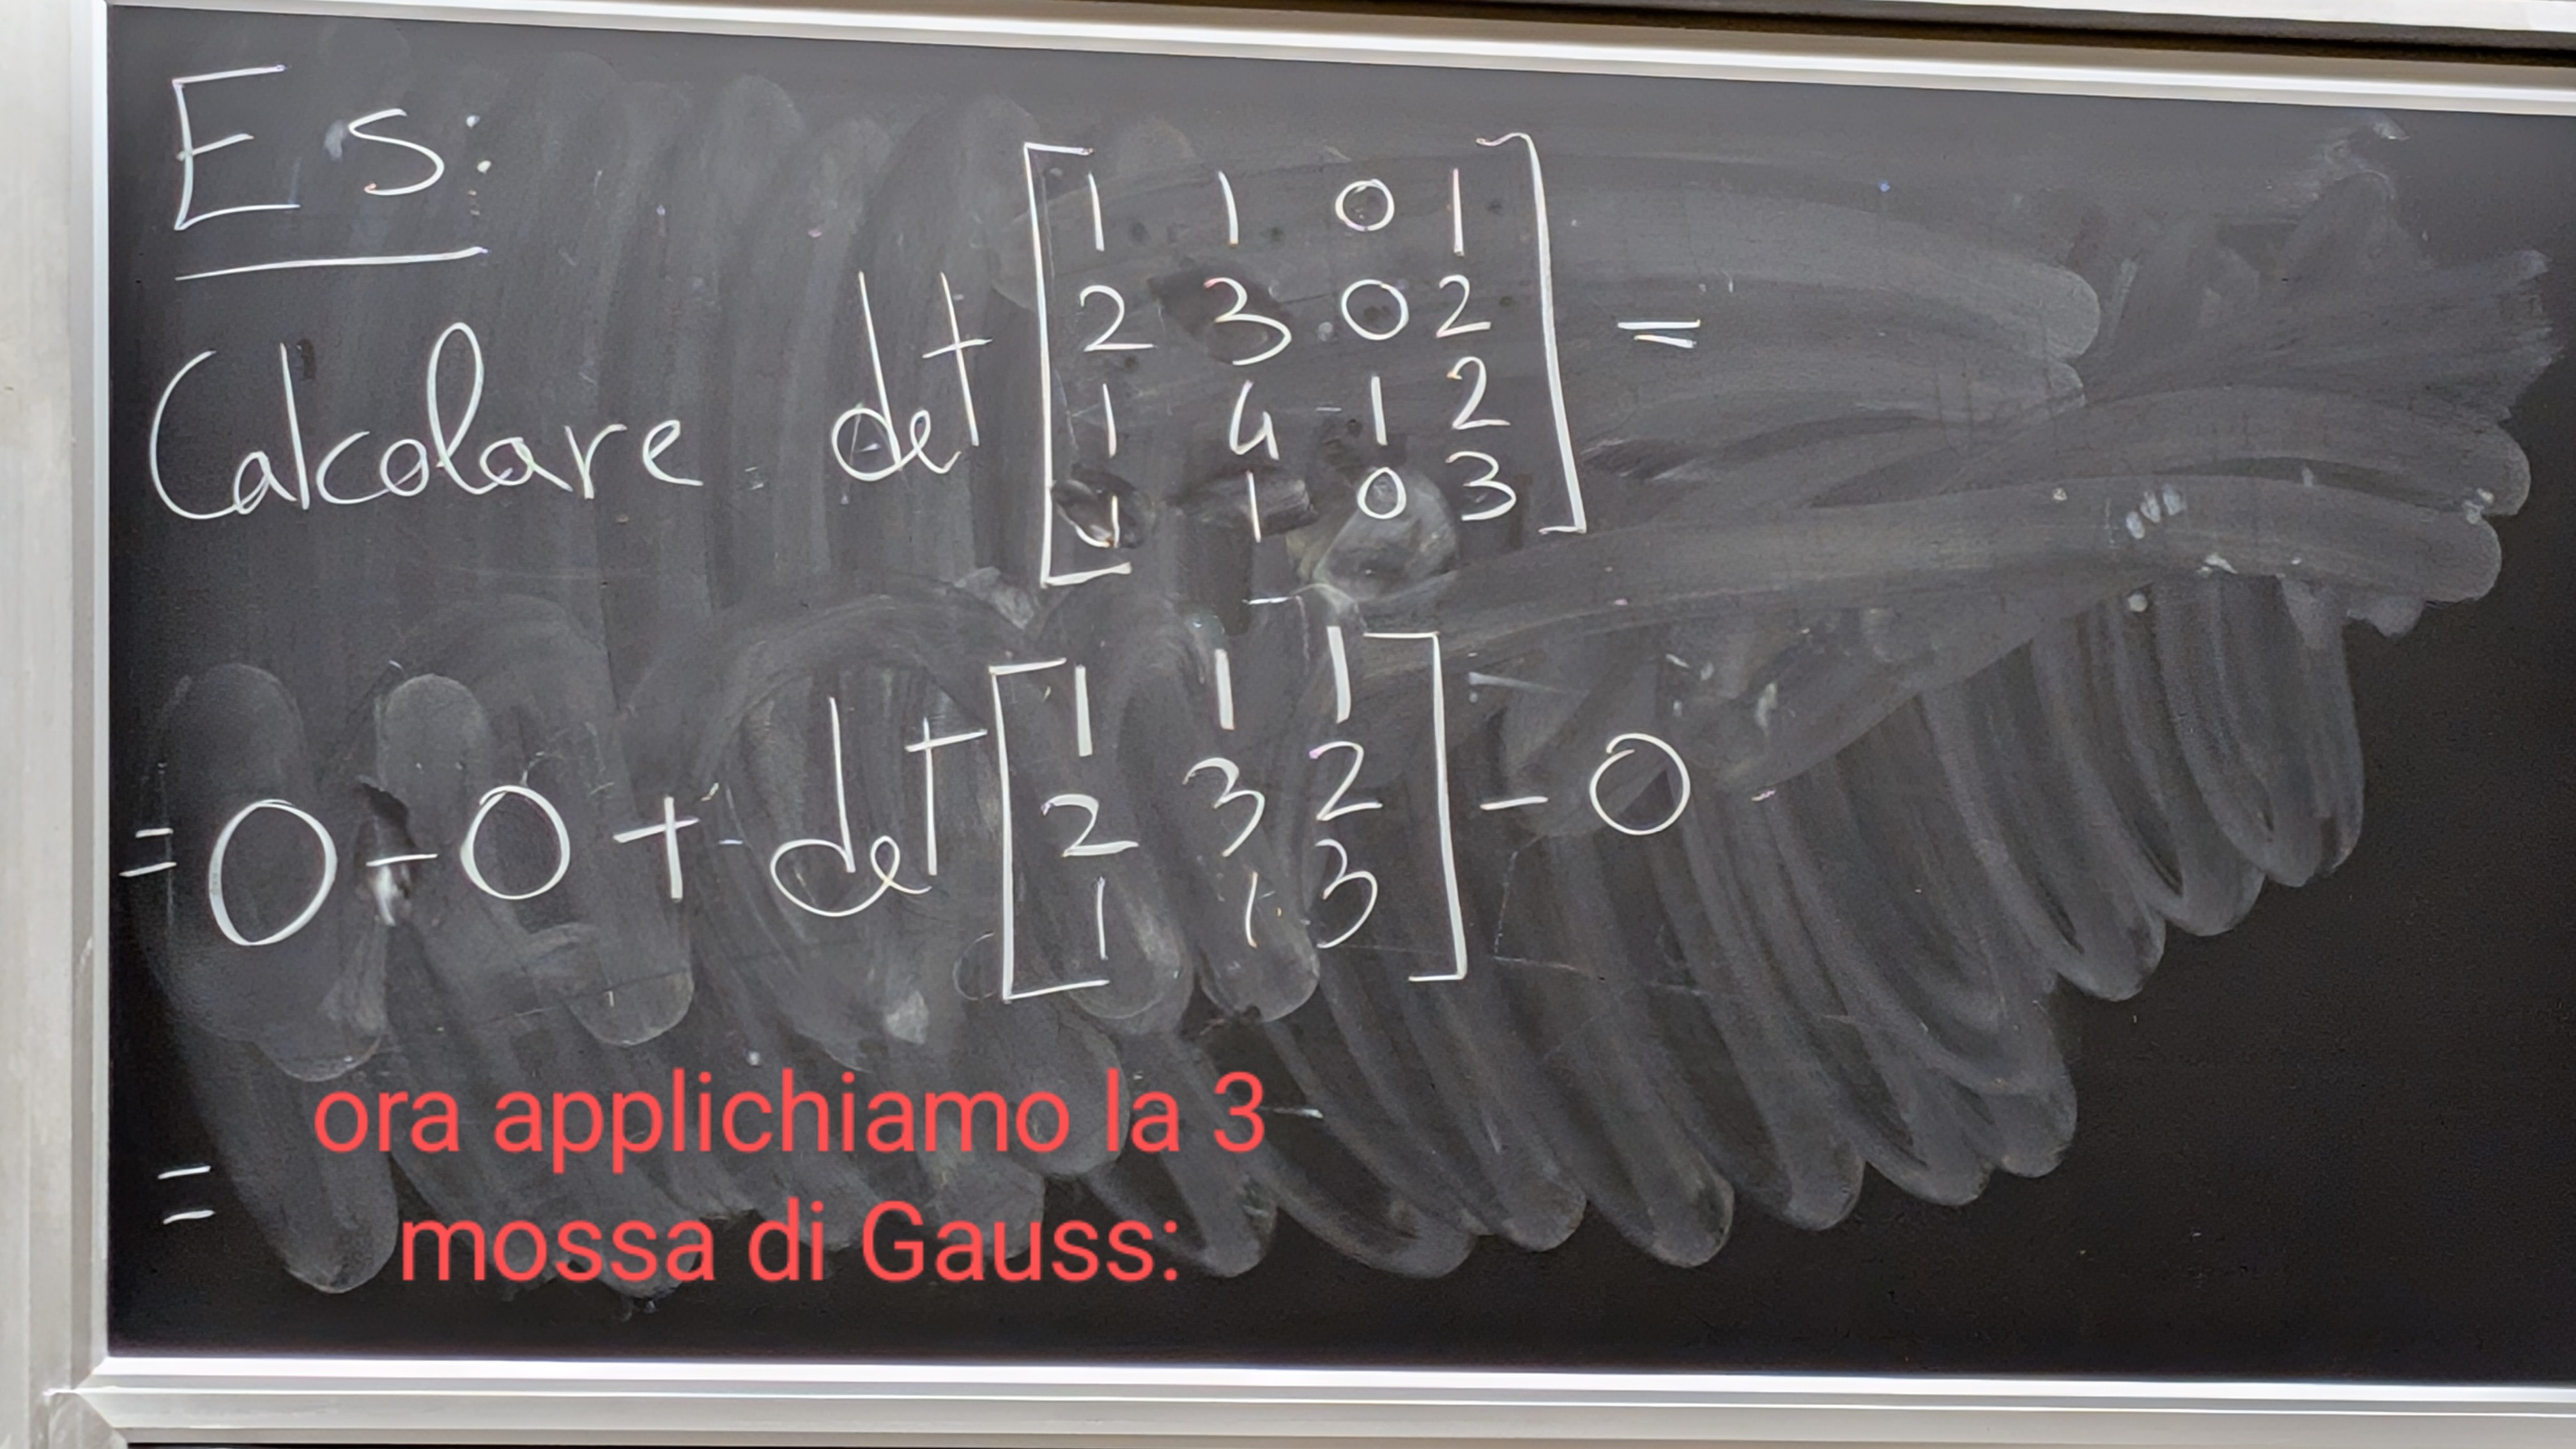 Es:
Calcolare det [1 1 0 1
2 3 0 2
1 4 1 2
1 1 0 3] =
= 0 - 0 + det [1 1 1
2 3 2
1 1 3] - 0
ora applichiamo la 3
= mossa di Gauss: